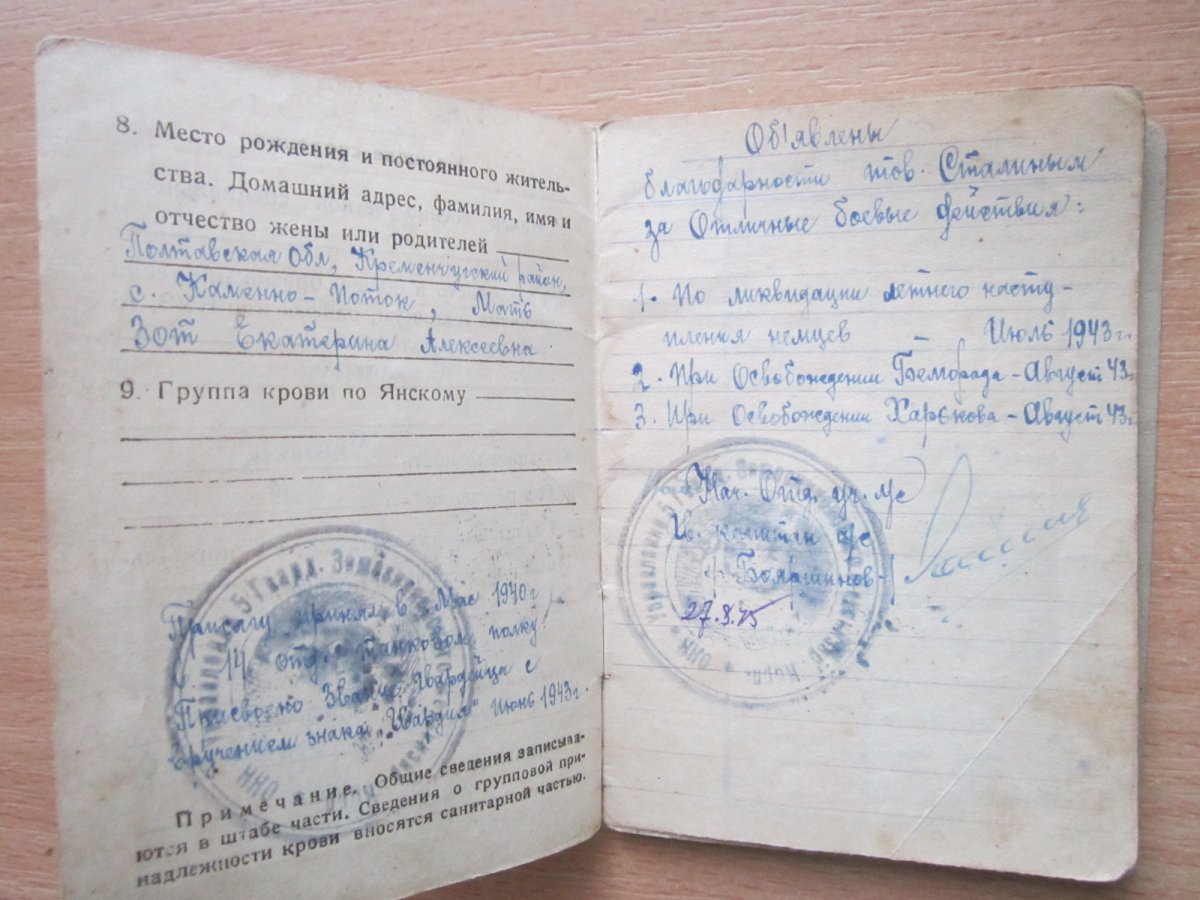 8. Место рождения и постоянного житель-
ства. Домашний адрес, фамилия, имя и
отчество жены или родителей
Полтавская Обл, Кременчугский район,
с. Каменно-Поток, Мать
Зот Екатерина Алексеевна.
9. Группа крови по Янскому
Присягу принял в Мае 1940 г
в 14 отд. танковом полку.
Присвоено Звание Гвардейца с
вручением знака „Гвардия" Июнь 1943 г.
Управление 5 Гвард. Зимовниковск
НКО
Примечание. Общие сведения записыва-
ются в штабе части. Сведения о групповой при-
надлежности крови вносятся санитарной частью.
Об'явлены
благодарности тов. Сталиным
за Отличные боевые действия:
1. По ликвидации летнего насту-
пления немцев – Июль 1943 г.
2. При Освобождении Белгорода – Август 43 г.
3. При Освобождении Харькова – Август 43 г.
Нач. Отд.
капитан
27.8.45
Управление 5 Гвард.